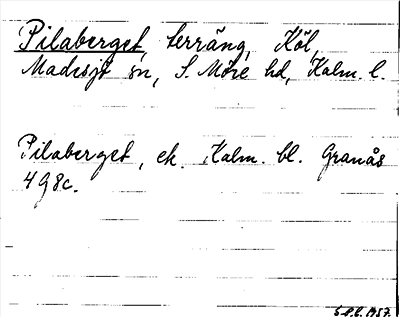 Pilaberget, terräng, Köl,
Madesjö sn, S. Möre hd, Kalm. l.
Pilaberget, ek. Kalm. bl. Granås
4 G 8c.
1957.